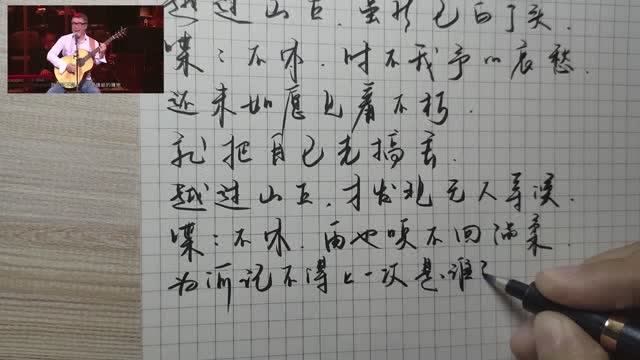 越过山丘，虽然已白了头．
喋：不休．时不我予的哀愁．
还未如愿见着不朽．
就把自己先搞丢．
越过山丘，才发现无人等候．
喋：不休．再也唤不回温柔．
为何记不得上一次是谁